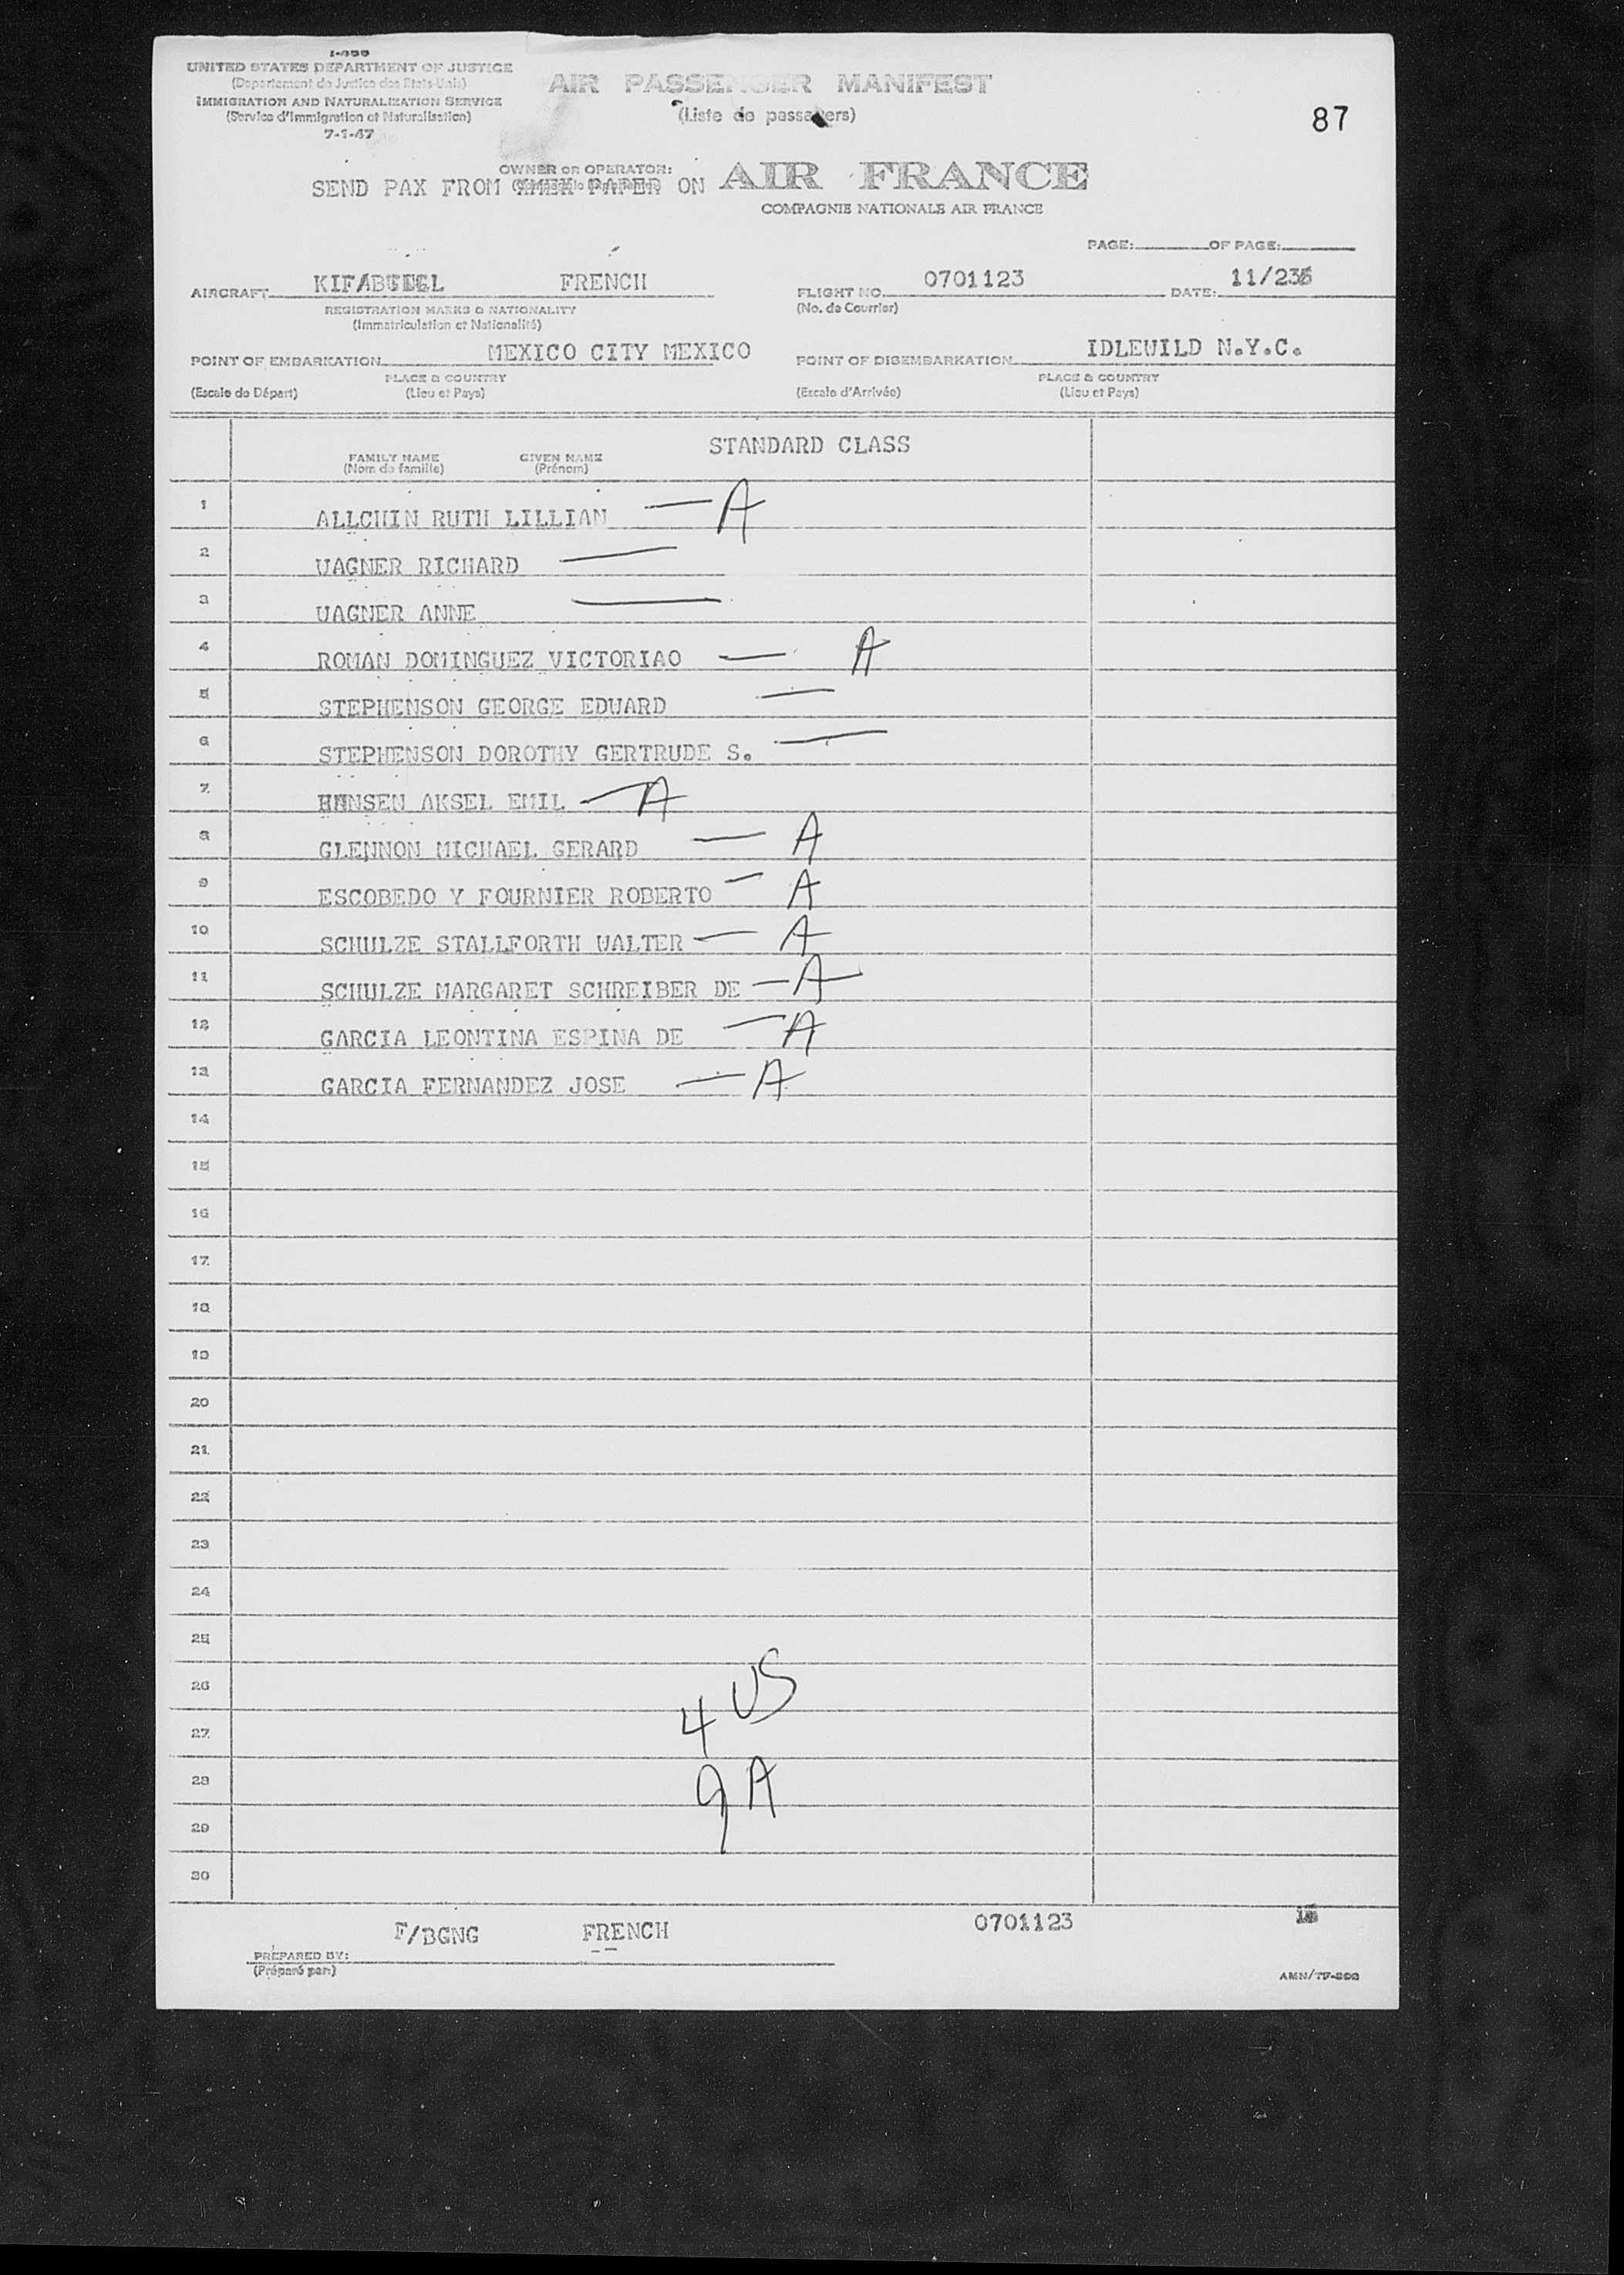 I-466
UNITED STATES DEPARTMENT OF JUSTICE
(Departement de Justice des Etats-Unis)
IMMIGRATION AND NATURALIZATION SERVICE
(Service d'Immigration et Naturalisation)
7-1-47
AIR PASSENGER MANIFEST
(Liste de passagers)
87
OWNER OR OPERATOR:
SEND PAX FROM PAPER ON AIR FRANCE
COMPAGNIE NATIONALE AIR FRANCE
PAGE: OF PAGE:
AIRCRAFT FRENCH
REGISTRATION MARKS & NATIONALITY
(Immatriculation et Nationalité)
FLIGHT NO. 0701123 DATE: 11/23
(No. de Courrier)
POINT OF EMBARKATION MEXICO CITY MEXICO
PLACE & COUNTRY
(Escale de Départ) (Lieu et Pays)
POINT OF DISEMBARKATION IDLEWILD N.Y.C.
PLACE & COUNTRY
(Escale d'Arrivée) (Lieu et Pays)
STANDARD CLASS
FAMILY NAME GIVEN NAME
(Nom de famille) (Prénom)
1 ALLCHIN RUTH LILLIAN — A
2 WAGNER RICHARD —
3 WAGNER ANNE —
4 ROMAN DOMINGUEZ VICTORIAO — A
5 STEPHENSON GEORGE EDWARD —
6 STEPHENSON DOROTHY GERTRUDE S. —
7 HANSEN AKSEL EMIL — A
8 GLENNON MICHAEL GERARD — A
9 ESCOBEDO Y FOURNIER ROBERTO — A
10 SCHULZE STALLFORTH WALTER — A
11 SCHULZE MARGARET SCHREIBER DE — A
12 GARCIA LEONTINA ESPINA DE — A
13 GARCIA FERNANDEZ JOSE — A
14
15
16
17
18
19
20
21
22
23
24
25
26
27
28
29
30
4 US
9 A
F/BGNG FRENCH 0701123
PREPARED BY:
(Préparé par:)